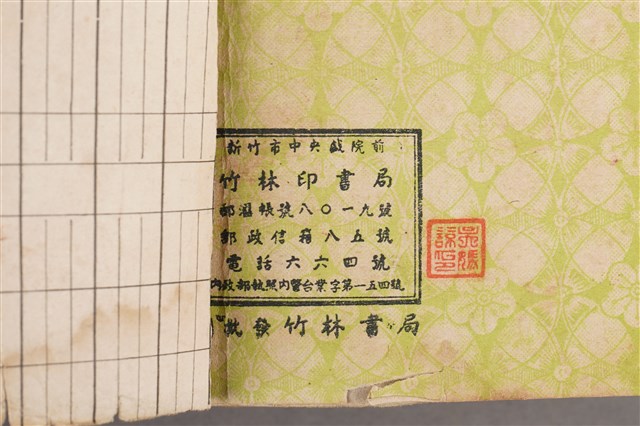 新竹市中央戲院前
竹林印書局
郵滙帳號八〇一九號
郵政信箱八五號
電話六六四號
內政部執照內警台業字第一五四號
批發竹林書局